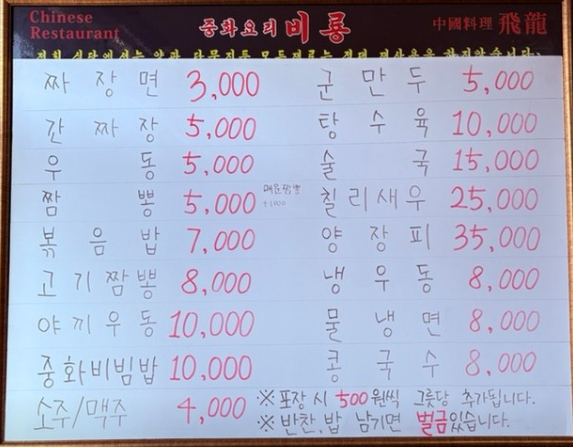 Chinese Restaurant 중화요리 비룡 中國料理 飛龍
저희 식당에서는 양파, 단무지등 모든재료는 절대 재사용을 하지않습니다.
짜장면 3,000 군만두 5,000
간짜장 5,000 탕수육 10,000
우동 5,000 술국 15,000
짬뽕 5,000 매운짬뽕 +1000 칠리새우 25,000
볶음밥 7,000 양장피 35,000
고기짬뽕 8,000 냉우동 8,000
야끼우동 10,000 물냉면 8,000
중화비빔밥 10,000 콩국수 8,000
소주/맥주 4,000 ※ 포장 시 500원씩 그릇당 추가됩니다.
※ 반찬,밥 남기면 벌금있습니다.